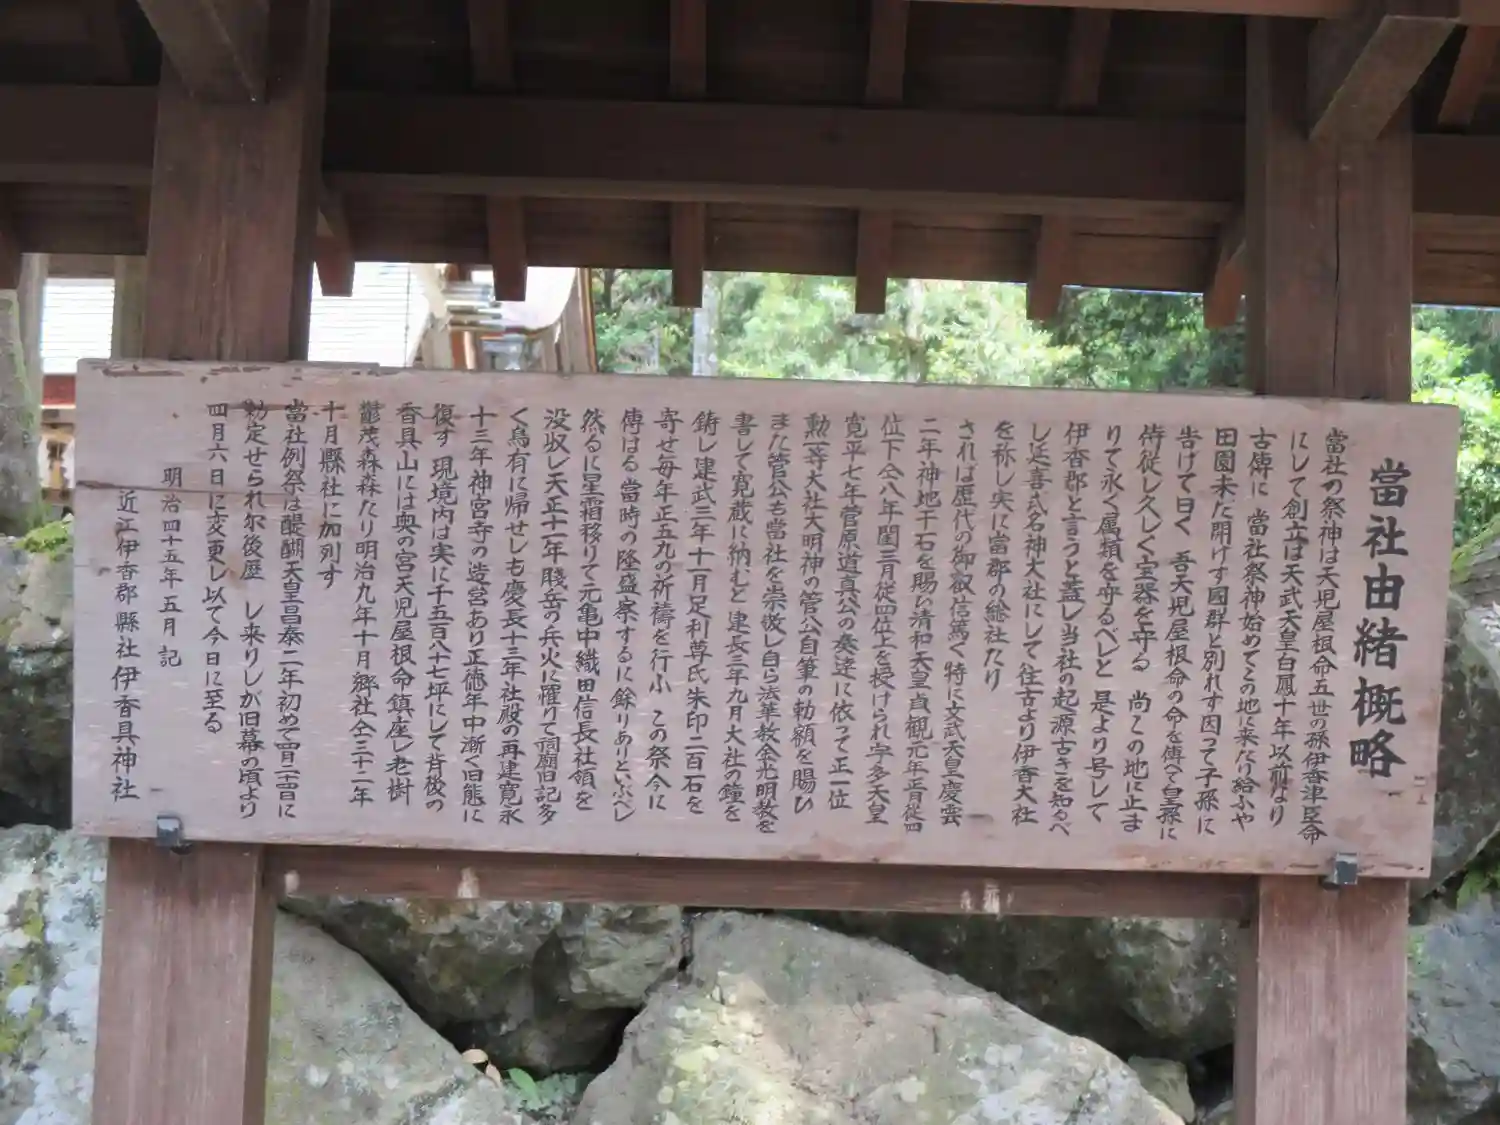 當社由緒概略
當社の祭神は天児屋根命五世の孫伊香津臣命
にして創立は天武天皇白鳳十年以前なり
古傳に 當社祭神始めてこの地に来たり給ふや
田園未た開けす國群と別れす因って子孫に
告げて曰く 吾天児屋根命の命を傳へて皇孫に
侍従し久しく宝器を守る 尚この地に止ま
りて永く属類を守るべしと 是より号して
伊香郡と言うと蓋し当社の起源古きを知るべ
し延喜式名神大社にして往古より伊香大社
を称し実に當郡の総社たり
されば歴代の御叡信篤く特に文武天皇慶雲
二年神地千石を賜ひ清和天皇貞観元年正月従四
位下仝八年閏三月従四位上を授けられ宇多天皇
寛平七年菅原道真公の奏達に依って正一位
勲一等大社大明神の菅公自筆の勅額を賜ひ
また菅公も當社を崇敬し自ら法華教金光明教を
書して寛蔵に納むと 建長三年九月大社の鐘を
鋳し建武三年十一月足利尊氏朱印二百石を
寄せ毎年正五九の祈禱を行ふ この祭今に
傳はる當時の隆盛察するに餘りありといふべし
然るに星霜移りて元亀中織田信長社領を
没収し天正十一年賤岳の兵火に罹りて祠廟旧記多
く烏有に帰せしも慶長十三年社殿の再建寛永
十三年神宮寺の造営あり正徳年中漸く旧態に
復す 現境内は実に千五百八十七坪にして背後の
香具山には奥の宮天児屋根命鎮座し老樹
鬱茂森森たり明治九年十月郷社仝三十二年
十月縣社に加列す
當社例祭は醍醐天皇昌泰二年初めて四月二十四日に
勅定せられ尓後歴 し来りしが旧幕の頃より
四月六日に変更し以て今日に至る
明治四十五年五月 記
近江伊香郡縣社伊香具神社